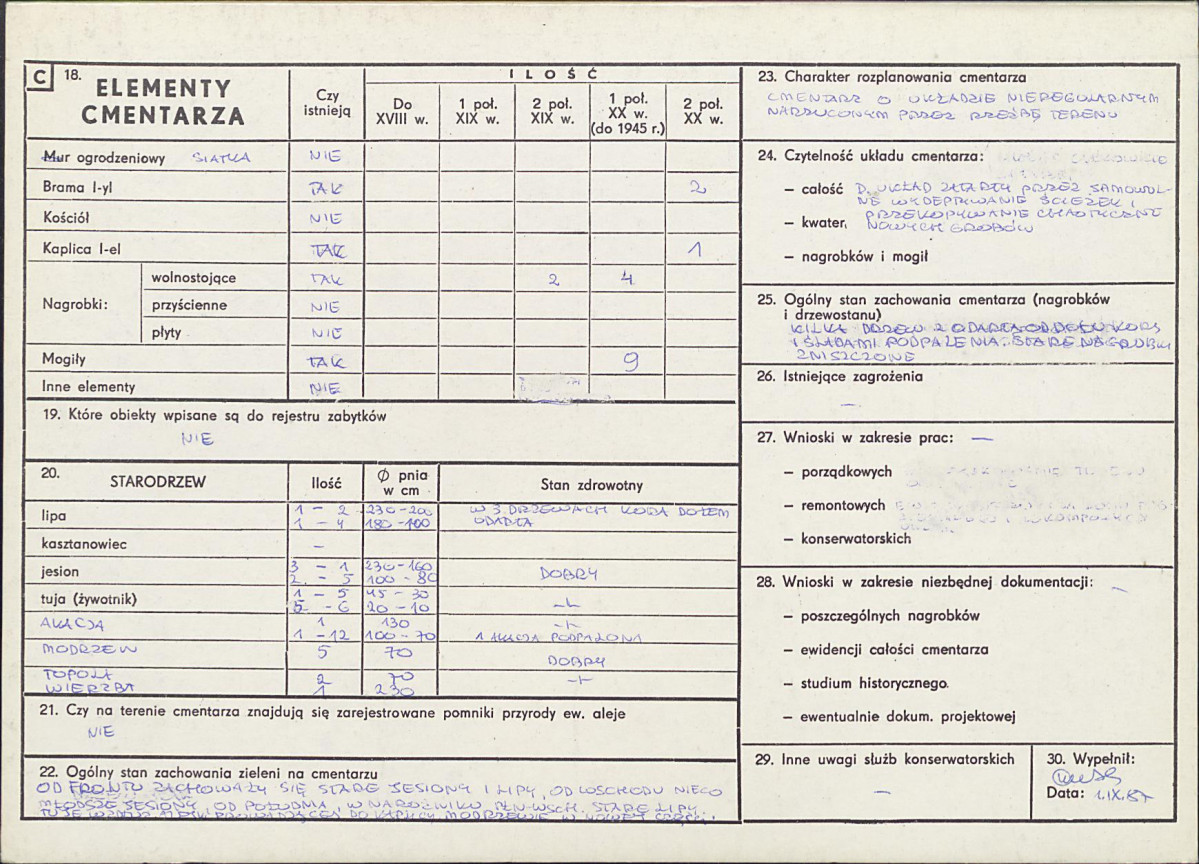 C 18. ELEMENTY CMENTARZA
Czy istnieją
ILOŚĆ
Do XVIII w.
1 poł. XIX w.
2 poł. XIX w.
1 poł. XX w. (do 1945 r.)
2 poł. XX w.
Mur ogrodzeniowy SIATKA NIE
Brama I-yl TAK 2
Kościół NIE
Kaplica I-el TAK 1
Nagrobki:
wolnostojące TAK 2 4
przyścienne NIE
płyty NIE
Mogiły TAK 9
Inne elementy NIE
19. Które obiekty wpisane są do rejestru zabytków
NIE
20. STARODRZEW Ilość Ø pnia w cm Stan zdrowotny
lipa 1 - 2 230-200 W 3 DRZEWACH KORA DOŁEM
1 - 4 180-100 ODARTA
kasztanowiec –
jesion 3 - 1 230-160
2 - 5 100-80 DOBRY
tuja (żywotnik) 1 - 5 45-30
5 - 6 20-10 -"-
AKACJA 1 130 -"-
1 - 12 100-70 1 AKACJA PODPALONA
MODRZEW 5 70 DOBRY
TOPOLA 2 70 -"-
WIERZBA 1 230
21. Czy na terenie cmentarza znajdują się zarejestrowane pomniki przyrody ew. aleje
NIE
22. Ogólny stan zachowania zieleni na cmentarzu
OD FRONTU ZACHOWAŁY SIĘ STARE JESIONY I LIPY, OD WSCHODU NIECO
MŁODSZE JESIONY, OD POŁUDNIA, W NAROŻNIKU PŁN-WSCH. STARE LIPY.
TUJE WZDŁUŻ DO KAPLICY MODRZEWIE W NOWEJ CZĘŚCI.
23. Charakter rozplanowania cmentarza
CMENTARZ O UKŁADZIE NIEREGULARNYM
NARZUCONYM PRZEZ RZEŹBĘ TERENU
24. Czytelność układu cmentarza:
– całość D. UKŁAD ZATARTY PRZEZ SAMOWOL-
NE WYDEPTYWANIE ŚCIEŻEK I
– kwater, PRZEKOPYWANIE CHAOTYCZNE
NOWYCH GROBÓW
– nagrobków i mogił
25. Ogólny stan zachowania cmentarza (nagrobków
i drzewostanu)
KILKA DRZEW Z ODARTĄ OD DOŁU KORĄ
I ŚLADAMI PODPALENIA. STARE NAGROBKI
ZNISZCZONE
26. Istniejące zagrożenia
–
27. Wnioski w zakresie prac: –
– porządkowych
– remontowych
– konserwatorskich
28. Wnioski w zakresie niezbędnej dokumentacji: –
– poszczególnych nagrobków
– ewidencji całości cmentarza
– studium historycznego
– ewentualnie dokum. projektowej
29. Inne uwagi służb konserwatorskich
–
30. Wypełnił:
Data: 1.IX.87